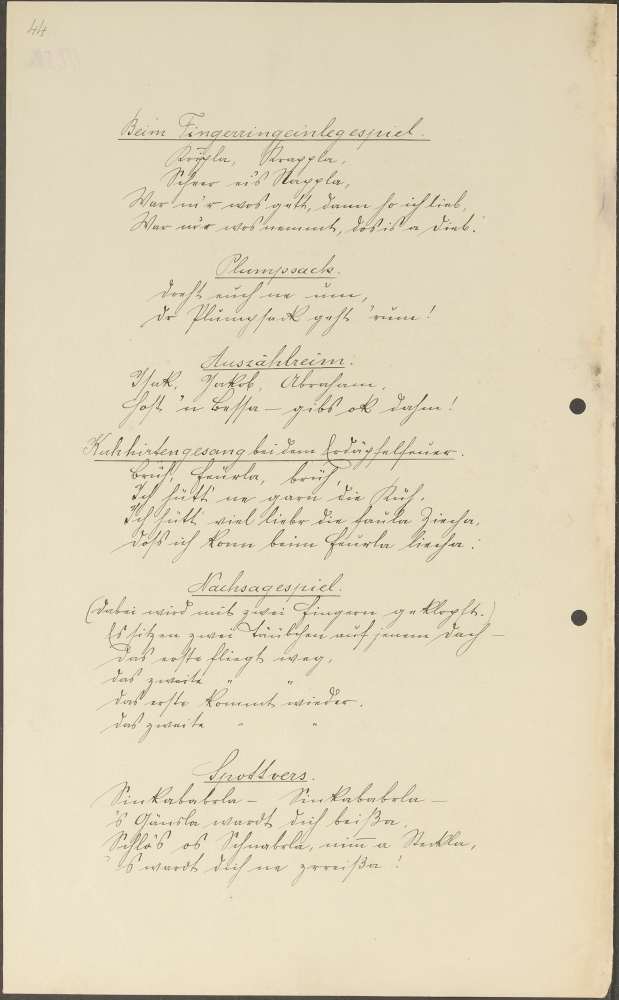 44
Beim Fingerringeinlegespiel.
Krappla,
Scher ei's Nappla,
War mir wos gett, dann ho ich lieb,
War mir wos nemmt, dos is a Dieb.
Plumpsack.
Dreht euch ne um,
Dr Plumpsack geht 'rum!
Auszählreim.
Isak, Jakob, Abraham,
Host 'n Bessa – gibs ok dahm!
Kuhhirtengesang bei dem Erdäpfelfeuer.
Brüh, Feuerla, brüh,
Ich hütt' ne garn die Küh.
Ich hütt' viel lieber die faula Ziecha,
Doß ich konn beim Feuerla liecha.
Nachsagespiel.
(Dabei wird mit zwei Fingern geklopft.)
Es sitzen zwei Täubchen auf jenem Dach –
Das erste fliegt weg,
das zweite " "
Das erste kommt wieder.
das zweite " "
Spottvers.
Sinkababrla – Sinkababrla –
's Gänsla wardt dich beißa,
Schlo's os Schnabrla, nimm a Steckla,
's wardt dich ne zrreißa!